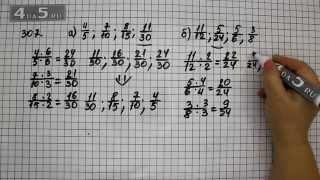 4
307 а) 4/5; 7/10; 8/15; 11/30   б) 11/12; 5/24; 5/6; 3/8
4·6/5·6 = 24/30   11/30; 16/30; 21/30; 24/30   11·2/12·2 = 22/24
7·3/10·3 = 21/30   5·4/6·4 = 20/24
8·2/15·2 = 16/30   11/30; 8/15; 7/10; 4/5   3·3/8·3 = 9/24